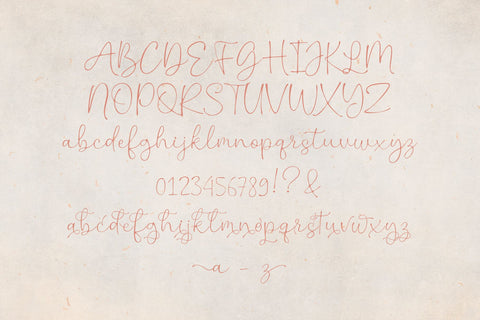 ABCDEFGHIJKLM
NOPQRSTUVWXYZ
abcdefghijklmnopqrstuvwxyz
0123456789!?&
abcdefghijklmnopqrstuvwxyz
a - z